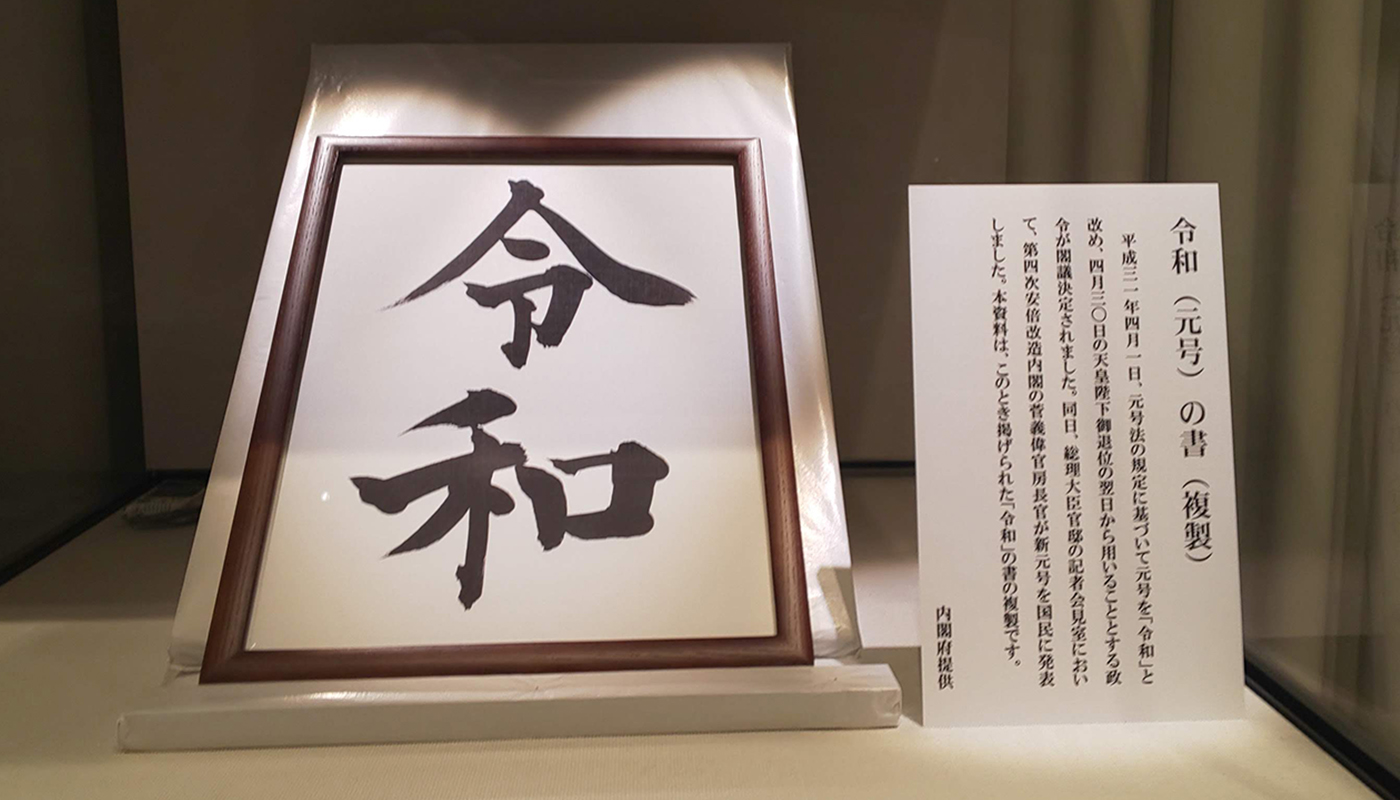 令和
令和（元号）の書（複製）
平成三一年四月一日、元号法の規定に基づいて元号を「令和」と
改め、四月三〇日の天皇陛下御退位の翌日から用いることとする政
令が閣議決定されました。同日、総理大臣官邸の記者会見室におい
て、第四次安倍改造内閣の菅義偉官房長官が新元号を国民に発表
しました。本資料は、このとき掲げられた「令和」の書の複製です。
内閣府提供